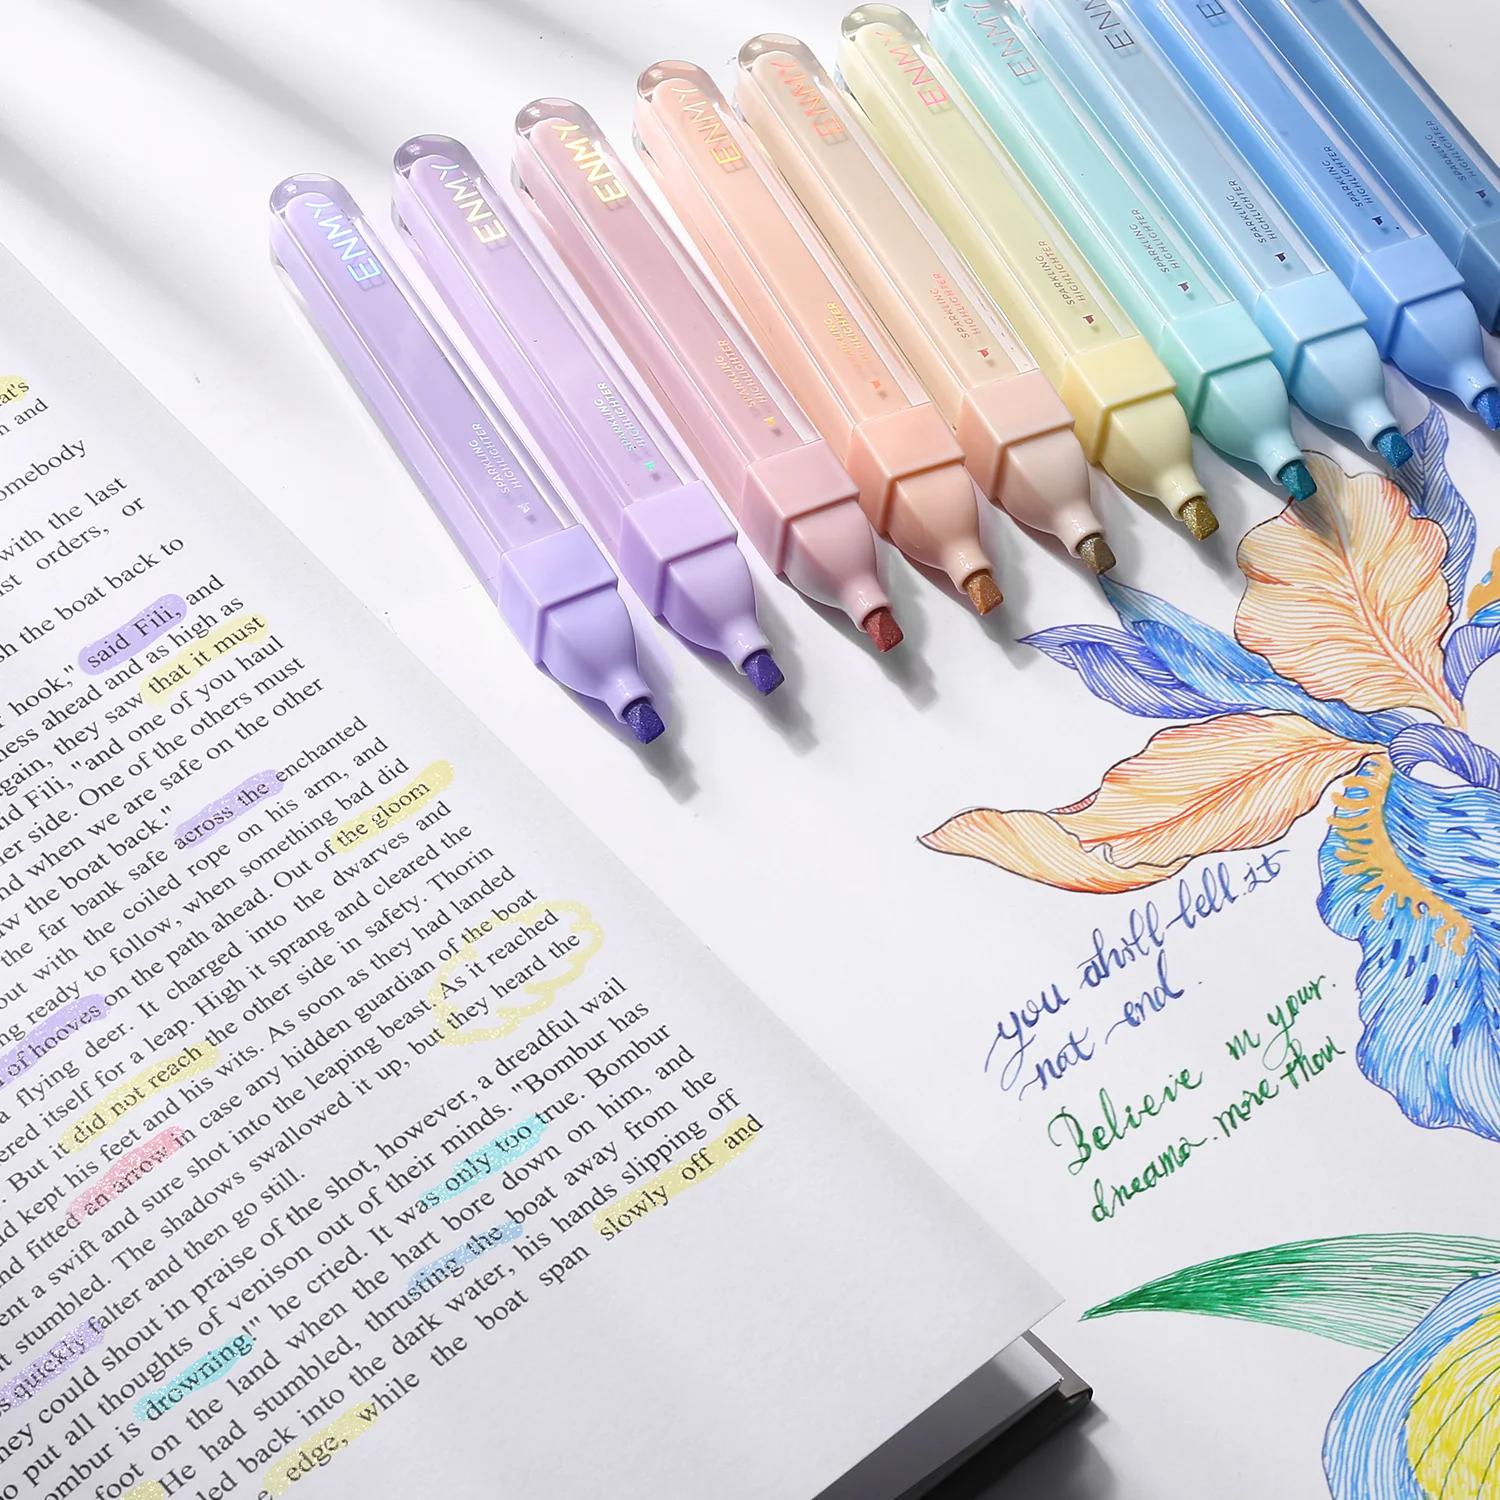 ENMY
SPARKLING
HIGHLIGHTER
ENMY
SPARKLING
HIGHLIGHTER
ENMY
SPARKLING
HIGHLIGHTER
ENMY
SPARKLING
HIGHLIGHTER
ENMY
SPARKLING
HIGHLIGHTER
ENMY
SPARKLING
HIGHLIGHTER
ENMY
SPARKLING
HIGHLIGHTER
ENMY
SPARKLING
HIGHLIGHTER
SPARKLING
HIGHLIGHTER
SPARKLING
HIGHLIGHTER
at's
and
omebody
with the last
orders, or
the boat back to
hook," said Fili, and
ness ahead and as high as
gain, they saw that it must
id Fili, "and one of you haul
er side. One of the others must
nd when we are safe on the other
aw the boat back."
the far bank safe across the enchanted
out with the coiled rope on his arm, and
ng ready to follow, when something bad did
of hooves on the path ahead. Out of the gloom
a flying deer. It charged into the dwarves and
ered itself for a leap. High it sprang and cleared the
. But it did not reach the other side in safety. Thorin
d kept his feet and his wits. As soon as they had landed
nd fitted an arrow in case any hidden guardian of the boat
ent a swift and sure shot into the leaping beast. As it reached
it stumbled. The shadows swallowed it up, but they heard the
s quickly falter and then go still.
hey could shout in praise of the shot, however, a dreadful wail
put all thoughts of venison out of their minds. "Bombur has
ombur is drowning!" he cried. It was only too true. Bombur
foot on the land when the hart bore down on him, and
He had stumbled, thrusting the boat away from the
led back into the dark water, his hands slipping off
edge, while the boat span slowly off and
you
not end.
Believe in your
dreams. more than